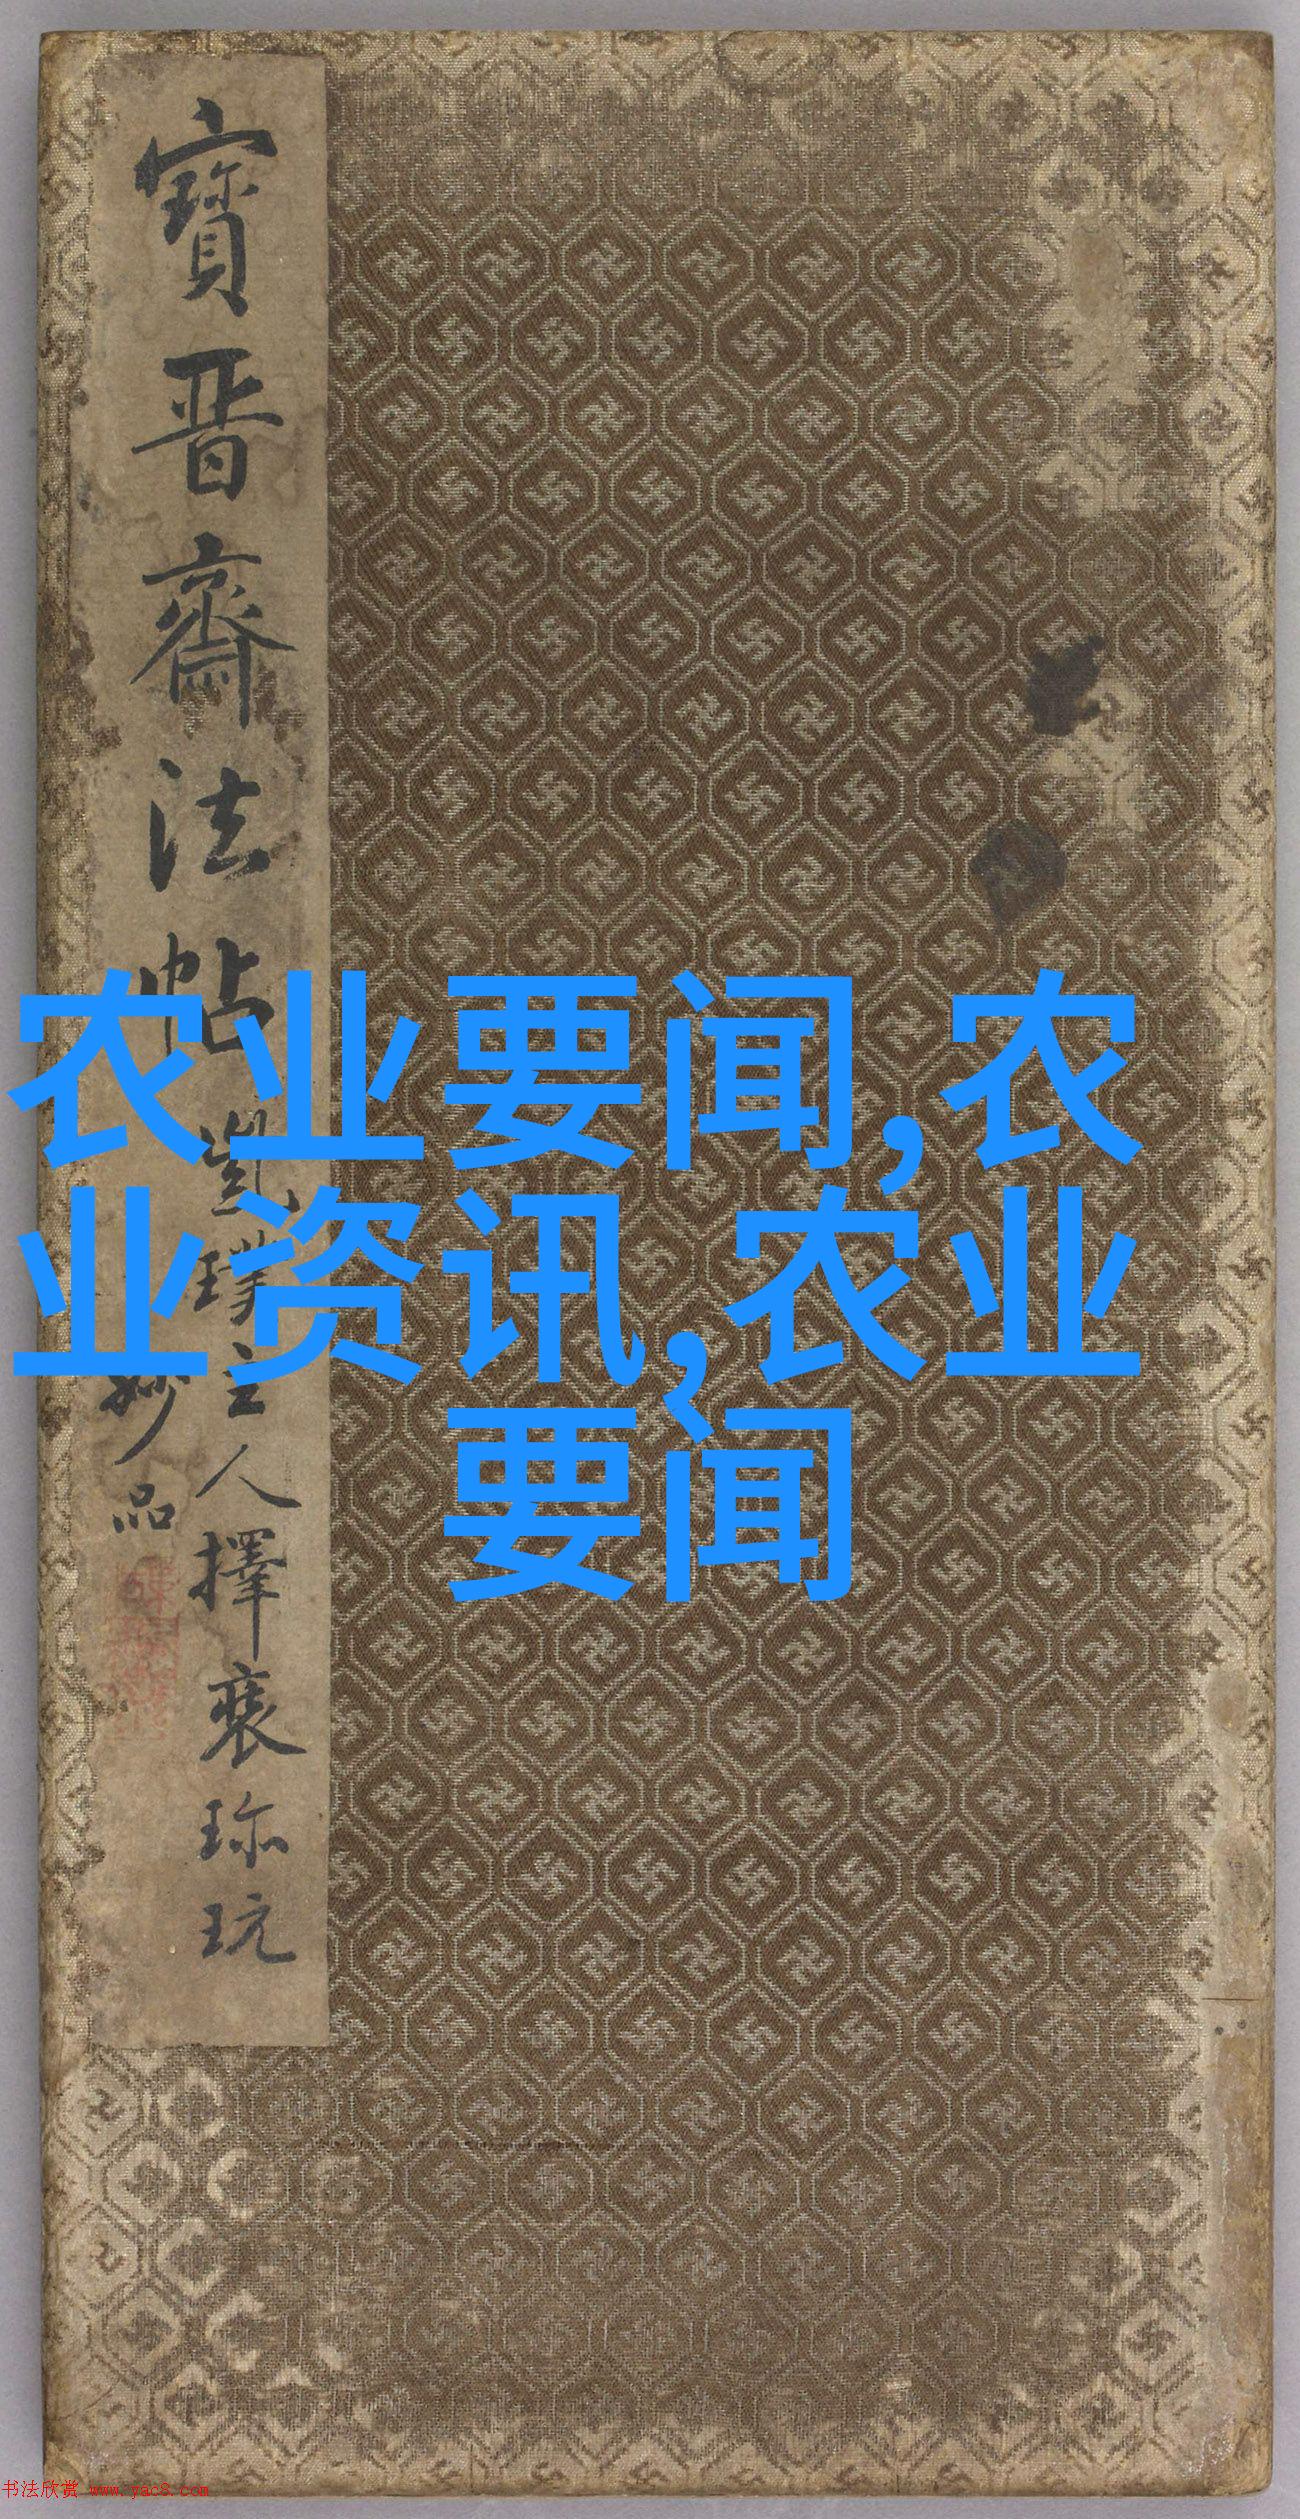 寳晋齋法帖
嵗璞主人擇裘珎玩
妙品
农业要闻,农
业资讯,农业
要闻
书法欣赏 www.yac8.com